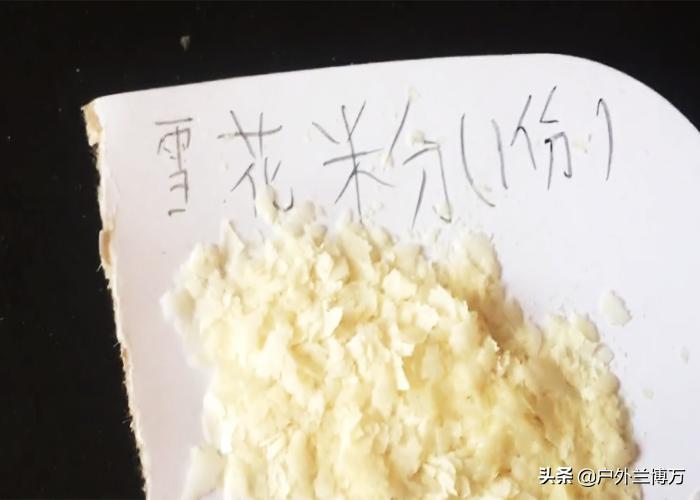 雪花粉(1份)
头条 @户外兰博万